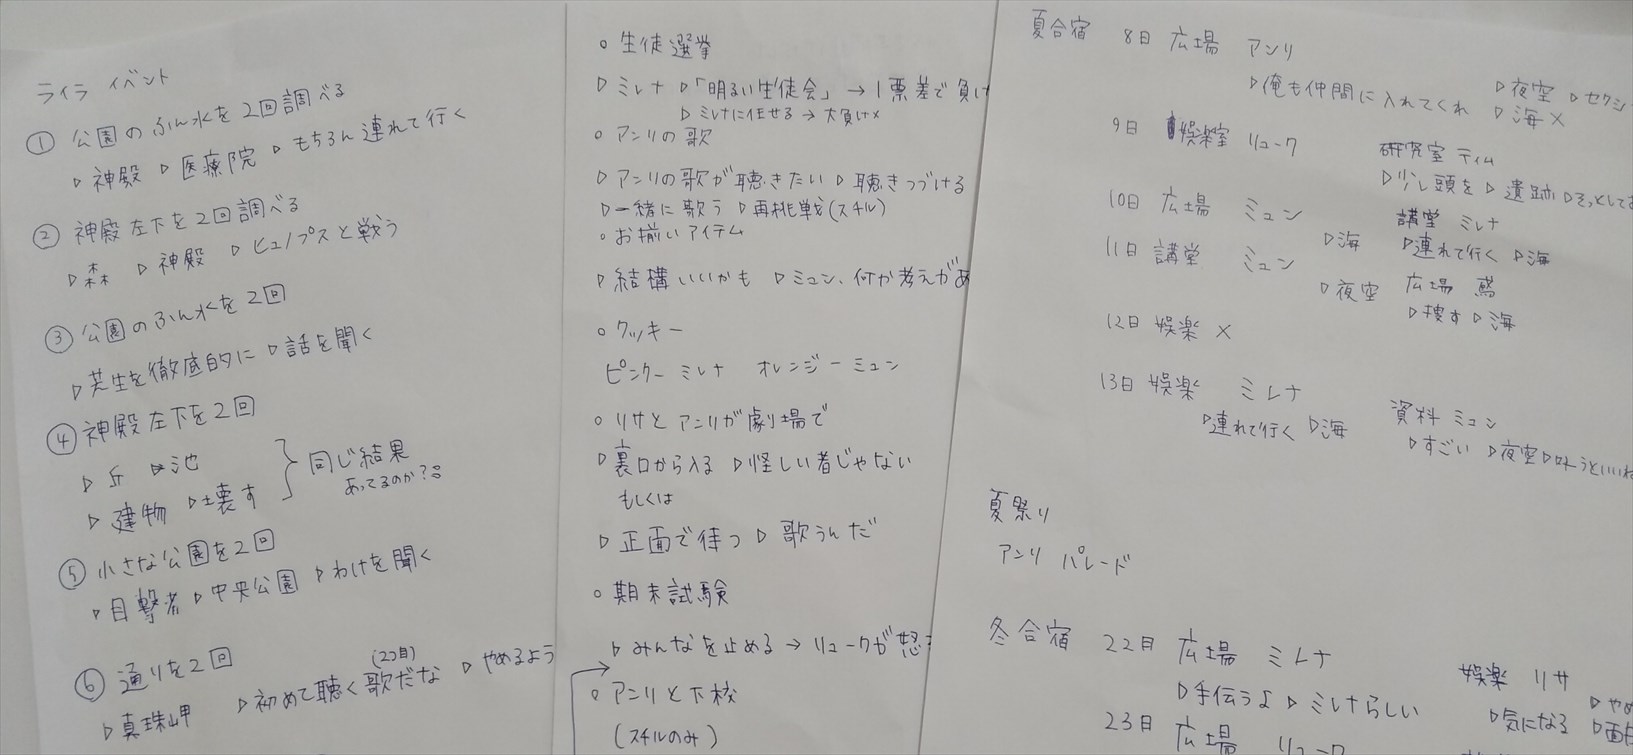 ライラ イベント
① 公園のふん水を2回調べる
▷神殿 ▷医療院 ▷もちろん連れて行く
② 神殿左下を2回調べる
▷森 ▷神殿 ▷ヒュプノスと戦う
③ 公園のふん水を2回
▷芳生を徹底的に ▷話を聞く
④ 神殿左下を2回
▷丘 ▷池
▷建物 ▷壊す
同じ結果
あってるのか?
⑤ 小さな公園を2回
▷目撃者 ▷中央公園 ▷わけを聞く
⑥ 通りを2回
(2つ目)
▷真珠岬 ▷初めて聴く歌だな ▷やめるよう
○生徒選挙
▷ミレナ ▷「明るい生徒会」→1票差で負け
▷ミレナに任せる→大負け×
○アンリの歌
▷アンリの歌が聴きたい ▷聴きつづける
▷一緒に歌う ▷再挑戦(スキル)
○お揃いアイテム
▷結構いいかも ▷ミュン、何か考えがあ
○クッキー
ピンクーミレナ オレンジーミュン
○リサとアンリが劇場で
▷裏口から入る ▷怪しい者じゃない
もしくは
▷正面で待つ ▷歌うんだ
○期末試験
▷みんなを止める→リュークが怒
○アンリと下校
(スキルのみ)
夏合宿 8日 広場 アンリ
▷俺も仲間に入れてくれ ▷夜空 ▷セクシ
▷海×
9日 娯楽室 リューク 研究室 ティム
▷少し頭を ▷遺跡 ▷そっとしてお
10日 広場 ミュン 講堂 ミレナ
▷海 ▷連れて行く ▷海
11日 講堂 ミュン 広場 鳶
▷夜空 ▷捜す ▷海
12日 娯楽 ×
13日 娯楽 ミレナ 資料 ミュン
▷連れて行く ▷海 ▷すごい ▷夜空 ▷叶うといいね
夏祭り
アンリ パレード
冬合宿 22日 広場 ミレナ 娯楽 リサ
▷手伝うよ ▷ミレナらしい ▷気になる ▷やめ
23日 広場 リューク